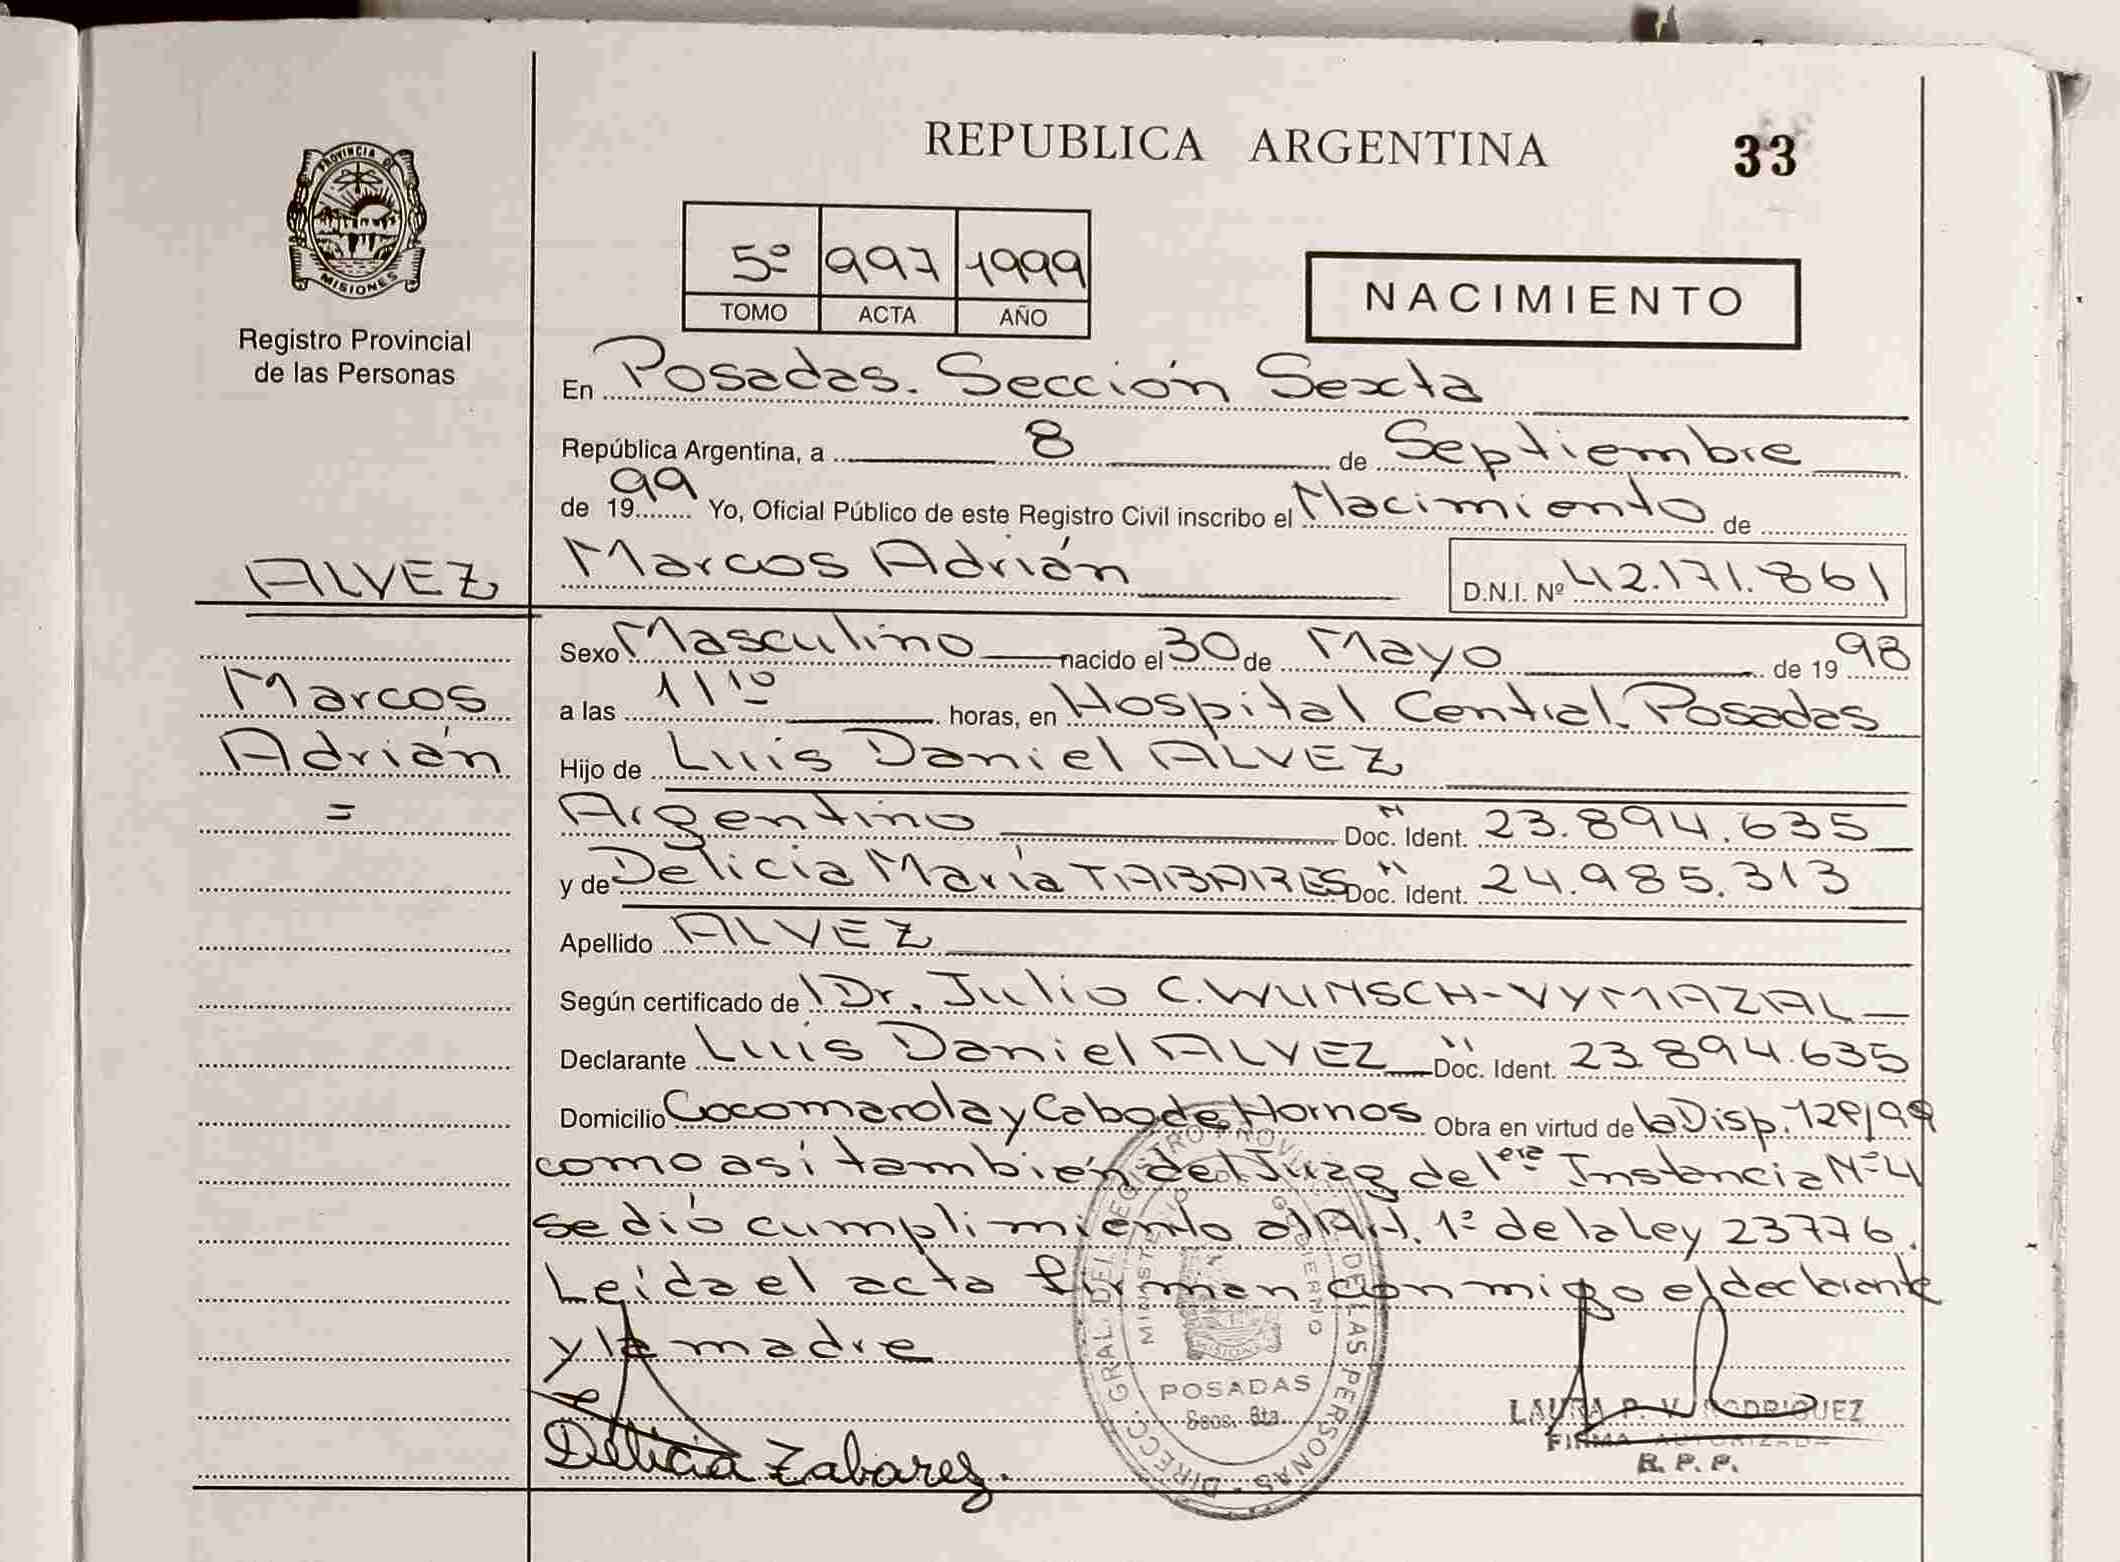 REPUBLICA ARGENTINA
33
PROVINCIA DE
MISIONES
Registro Provincial
de las Personas
5º 997 1999
TOMO ACTA AÑO
NACIMIENTO
En Posadas. Sección Sexta
República Argentina, a 8 de Septiembre
de 1999 Yo, Oficial Público de este Registro Civil inscribo el Nacimiento de
ALVEZ
Marcos Adrián
D.N.I. Nº 42.171.861
Marcos
Adrián
=
Sexo Masculino nacido el 30 de Mayo de 1998
a las 11 10 horas, en Hospital Central. Posadas
Hijo de Luis Daniel ALVEZ
Argentino Doc. Ident. 23.894.635
y de Delicia María TABARES Doc. Ident. 24.985.313
Apellido ALVEZ
Según certificado de Dr. Julio C. WUNSCH-VYMAZAL
Declarante Luis Daniel ALVEZ Doc. Ident. 23.894.635
Domicilio Cocomarola y Cabo de Hornos Obra en virtud de la Disp.
como así también del Juzg de 1era Instancia Nº 4
se dió cumplimiento al Art. 1º de la Ley 23776.
Leída el acta firman conmigo el declarante
y la madre
Delicia Zabarez.
DIRECC. GRAL. DEL REGISTRO PROVINCIAL DE LAS PERSONAS
MINISTERIO DE GOBIERNO
POSADAS
Secc. 6ta.
LAURA P. V. RODRIGUEZ
FIRMA AUTORIZADA
R. P. P.